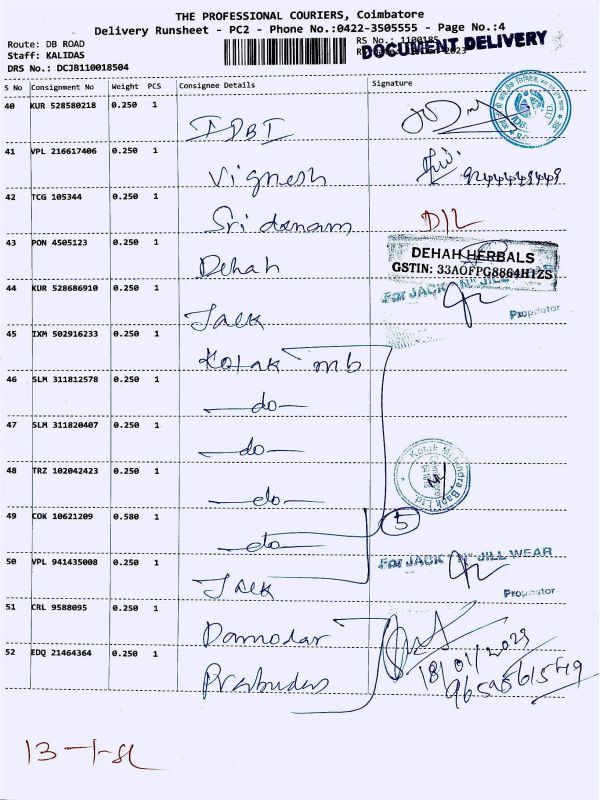 THE PROFESSIONAL COURIERS, Coimbatore
Delivery Runsheet - PC2 - Phone No.:0422-3505555 - Page No.:4
Route: DB ROAD
Staff: KALIDAS
DRS No.: DCJB110018504
RS No.: 1100185
DOCUMENT DELIVERY
S No Consignment No Weight PCS Consignee Details Signature
40 KUR 528580218 0.250 1 IDBI
41 VPL 216617406 0.250 1 Vignesh
42 TCG 105344 0.250 1 Sridanam D/L
43 PON 4505123 0.250 1 Dehah
DEHAH HERBALS
GSTIN: 33AOFPG8864H1ZS
44 KUR 528686910 0.250 1 Jack
For JACK N JILL
Proprietor
45 IXM 502916233 0.250 1 Kotak mb
46 SLM 311812578 0.250 1 do
47 SLM 311820407 0.250 1 do
48 TRZ 102042423 0.250 1 do
Kotak Mahindra Bank Ltd.
49 COK 10621209 0.580 1 do 5
50 VPL 941435008 0.250 1 Jack
For JACK "N" JILL WEAR
Proprietor
51 CRL 9588095 0.250 1 Damodar
18/01/2023
52 EDQ 21464364 0.250 1 Prabudas